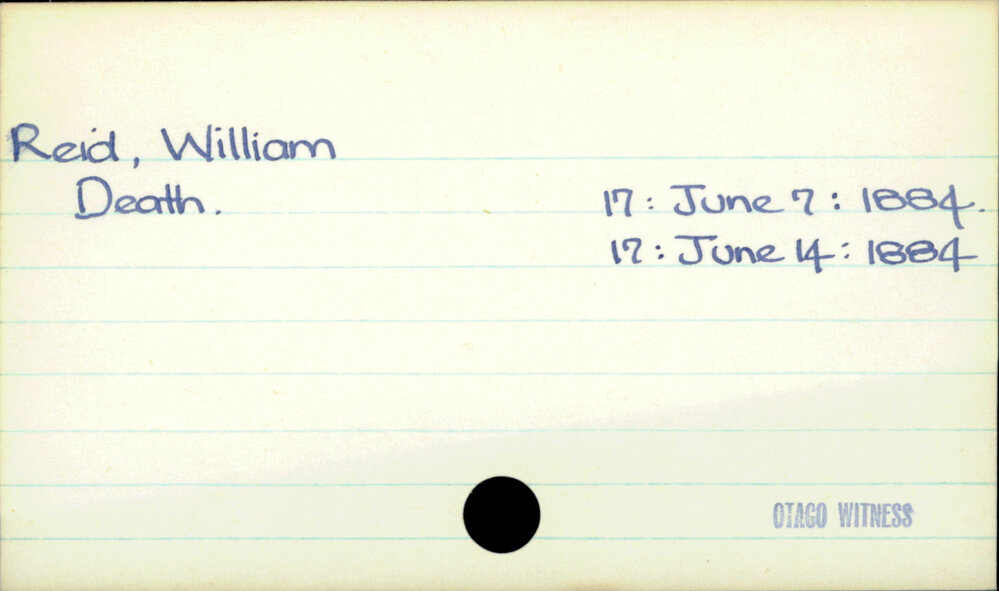 Reid, William
Death. 17: June 7: 1884.
17: June 14: 1884
OTAGO WITNESS